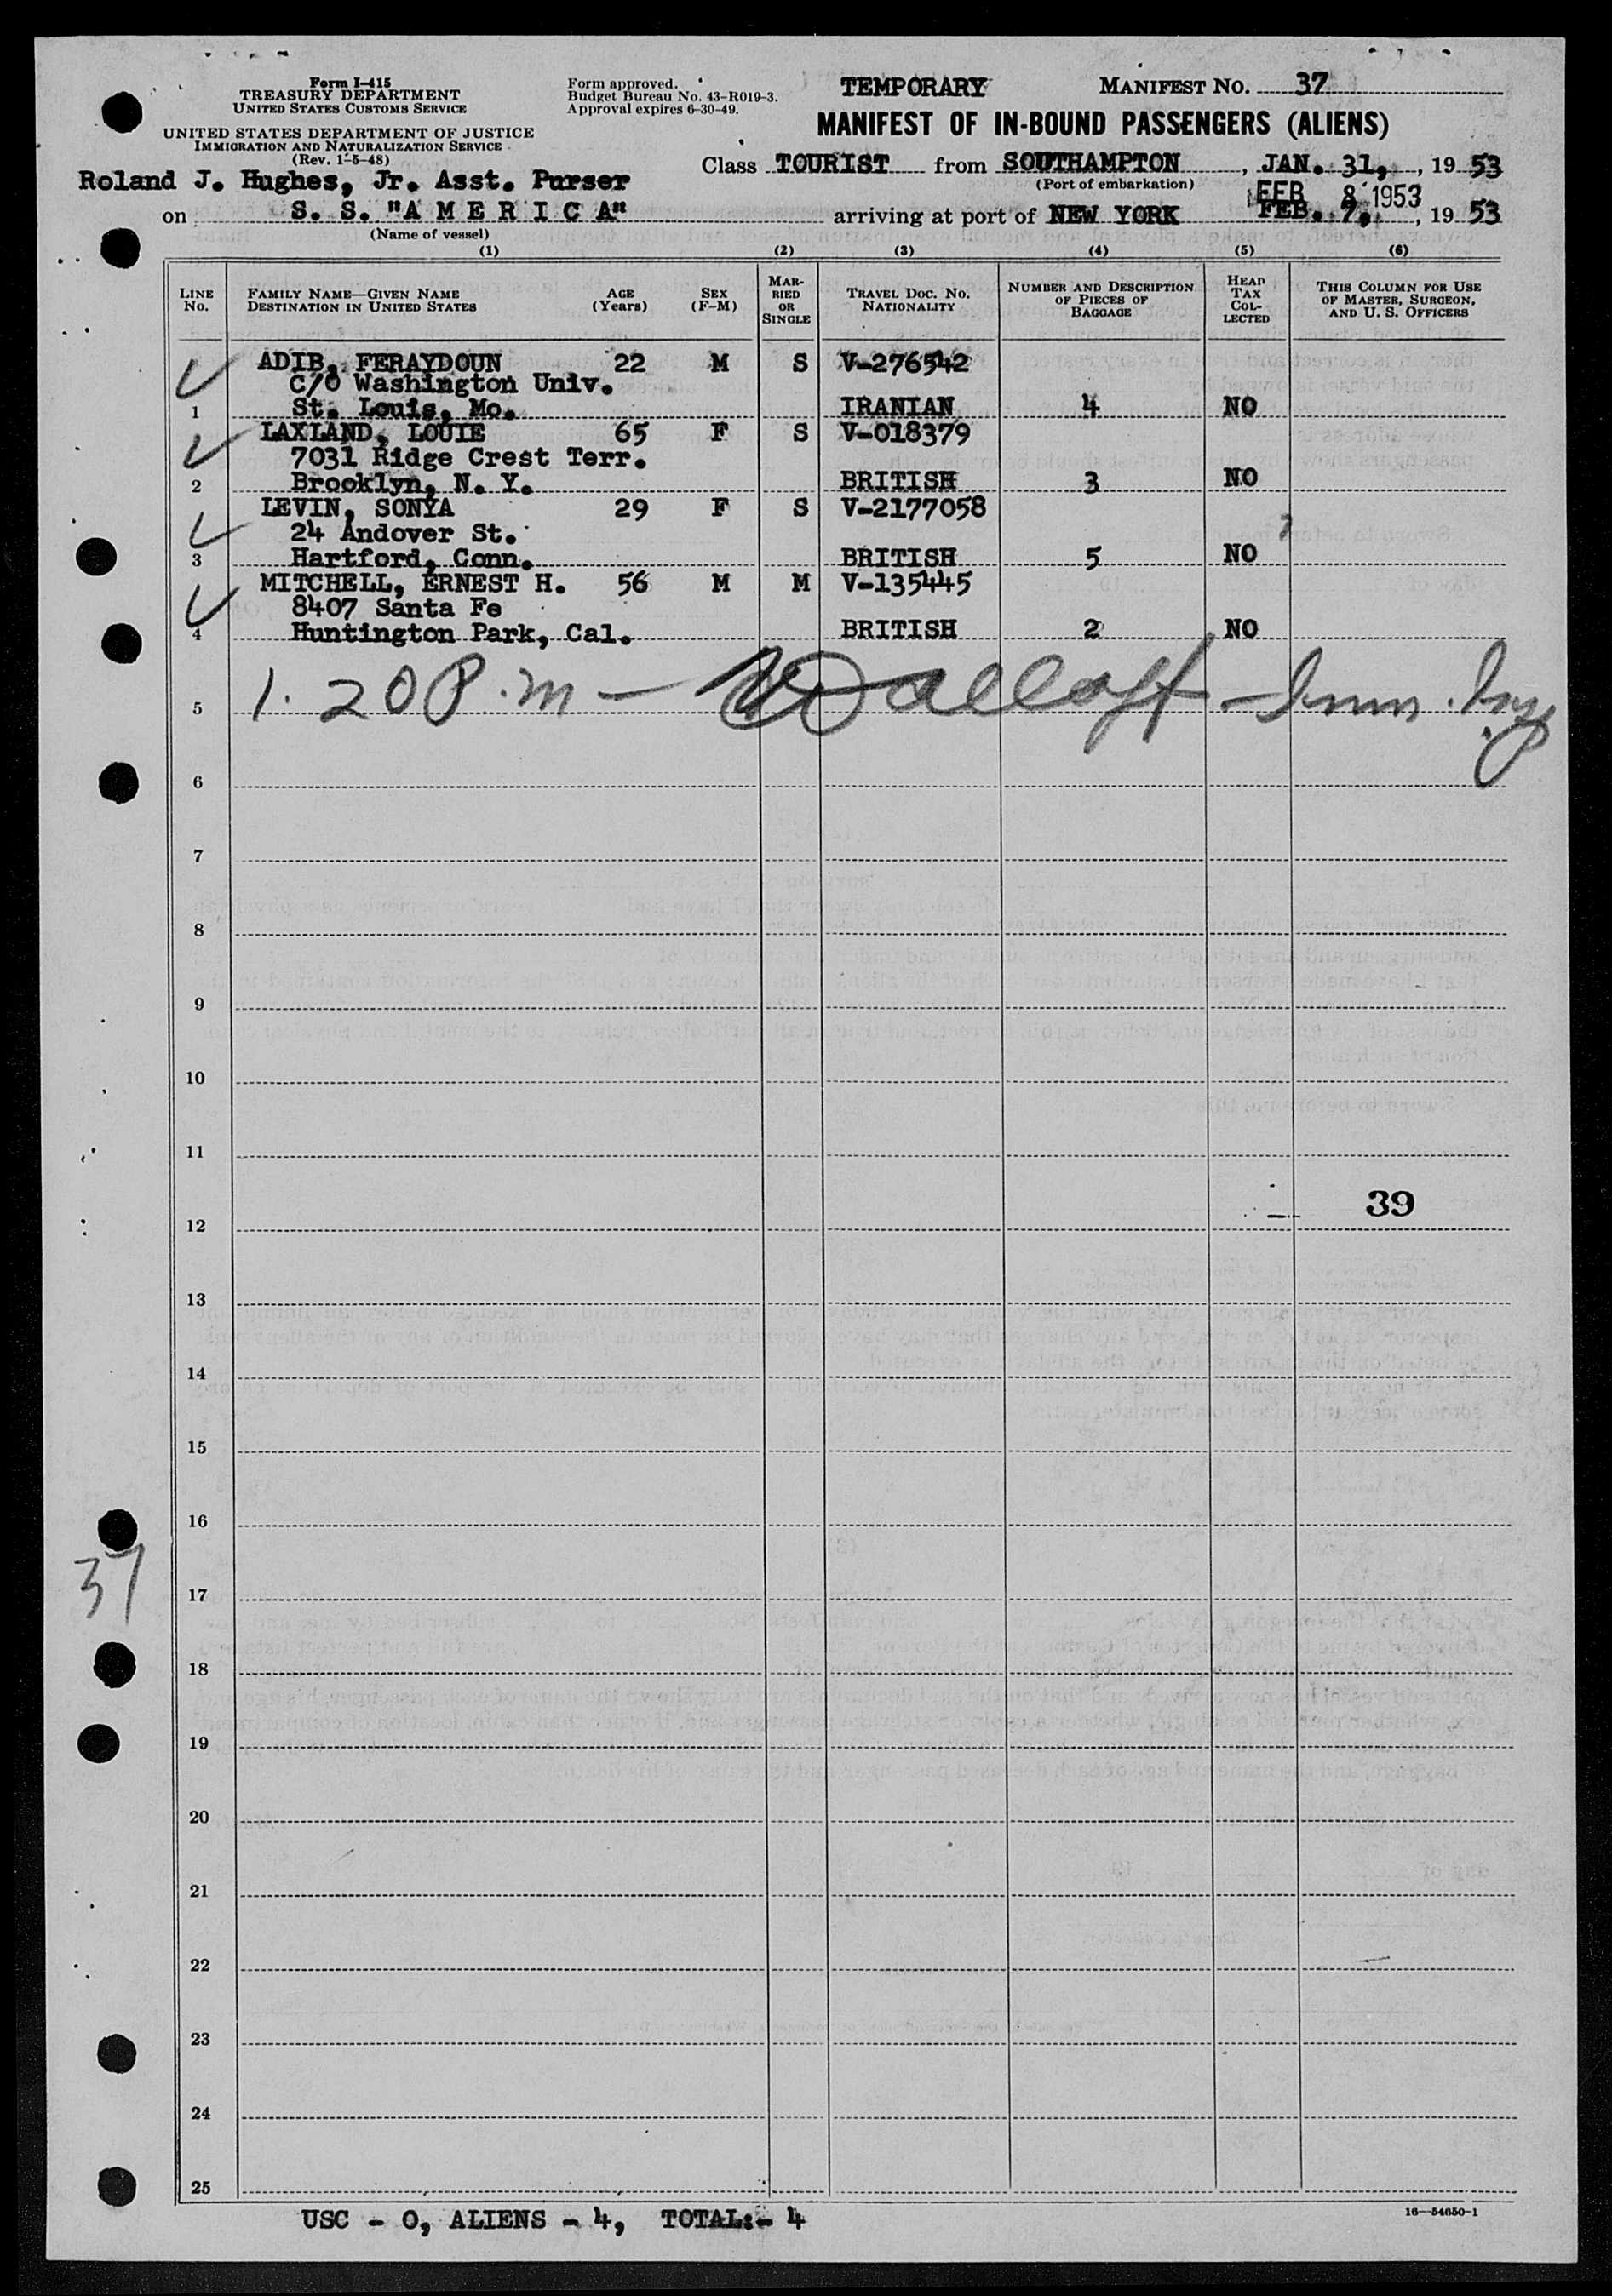 Form I-415
TREASURY DEPARTMENT
UNITED STATES CUSTOMS SERVICE
UNITED STATES DEPARTMENT OF JUSTICE
IMMIGRATION AND NATURALIZATION SERVICE
(Rev. 1-5-48)
Form approved.
Budget Bureau No. 43-R019-3.
Approval expires 6-30-49.
TEMPORARY MANIFEST NO. 37
MANIFEST OF IN-BOUND PASSENGERS (ALIENS)
Class TOURIST from SOUTHAMPTON, JAN. 31, 19 53
(Port of embarkation)
Roland J. Hughes, Jr. Asst. Purser
FEB 8 1953
on S. S. "A M E R I C A" arriving at port of NEW YORK FEB. 7, 19 53
(Name of vessel)
(1) (2) (3) (4) (5) (6)
LINE NO. FAMILY NAME—GIVEN NAME DESTINATION IN UNITED STATES AGE (Years) SEX (F-M) MARRIED OR SINGLE TRAVEL DOC. NO. NATIONALITY NUMBER AND DESCRIPTION OF PIECES OF BAGGAGE HEAD TAX COLLECTED THIS COLUMN FOR USE OF MASTER, SURGEON, AND U. S. OFFICERS
ADIB, FERAYDOUN 22 M S V-276542
C/O Washington Univ.
1 St. Louis, Mo. IRANIAN 4 NO
LAXLAND, LOUIE 65 F S V-018379
7031 Ridge Crest Terr.
2 Brooklyn, N. Y. BRITISH 3 NO
LEVIN, SONYA 29 F S V-2177058
24 Andover St.
3 Hartford, Conn. BRITISH 5 NO
MITCHELL, ERNEST H. 56 M M V-135445
8407 Santa Fe
4 Huntington Park, Cal. BRITISH 2 NO
1.20 P.m —
5
6
7
8
9
10
11
39
12
13
14
15
16
37
17
18
19
20
21
22
23
24
25
USC - 0, ALIENS - 4, TOTAL:- 4
16—54650-1